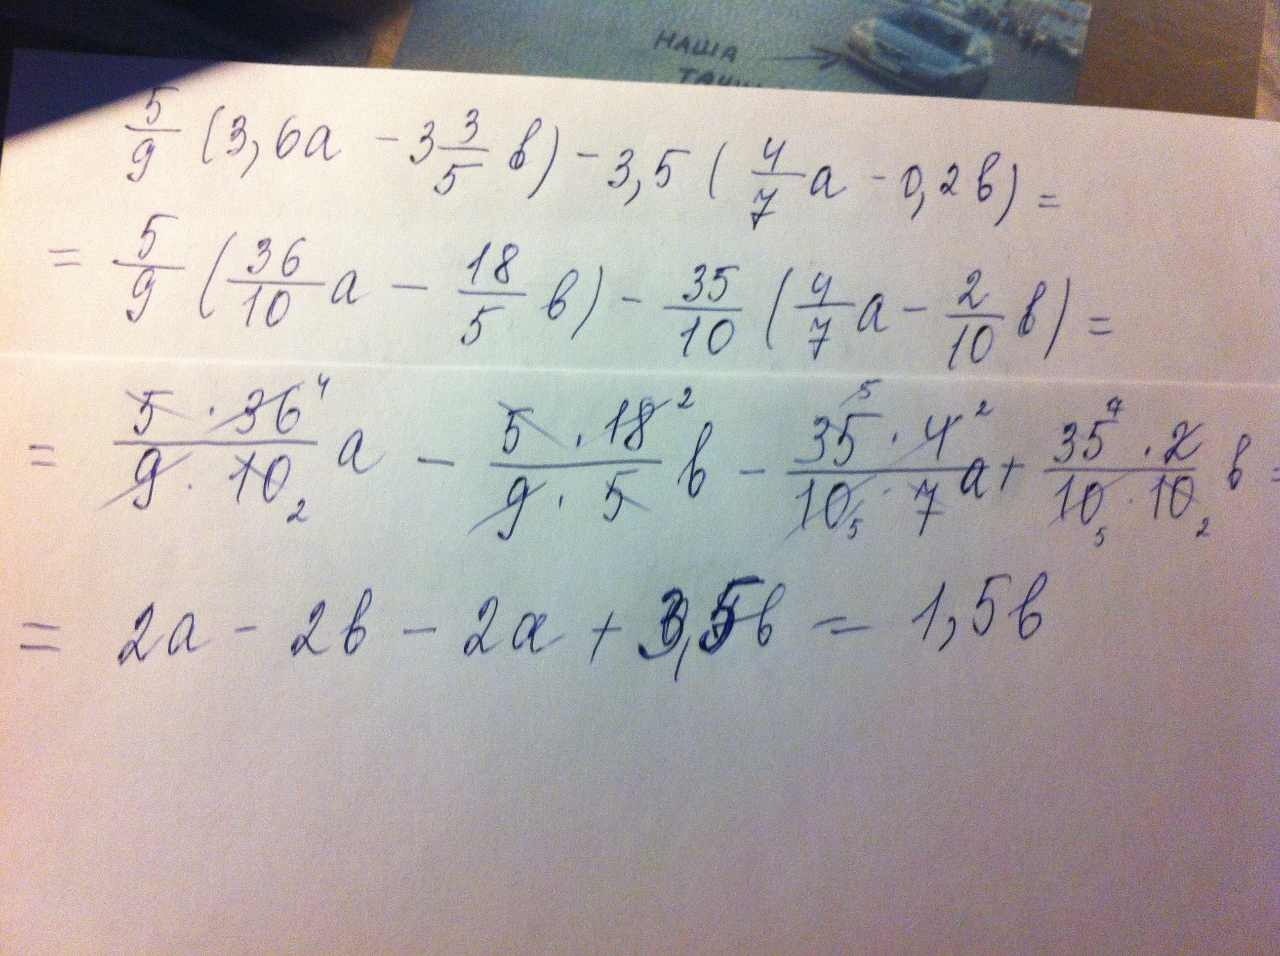 НАША
5/9 (3,6а - 3 3/5 в) - 3,5 ( 4/7 а - 0,2в) =
= 5/9 ( 36/10 а - 18/5 в) - 35/10 ( 4/7 а - 2/10 в) =
= 5 · 36 4 / 9 · 10 2 а - 5 · 18 2 / 9 · 5 в - 35 5 · 4 2 / 10 5 · 7 а + 35 7 · 2 / 10 5 · 10 2 в =
= 2а - 2в - 2а + 3,5в = 1,5в